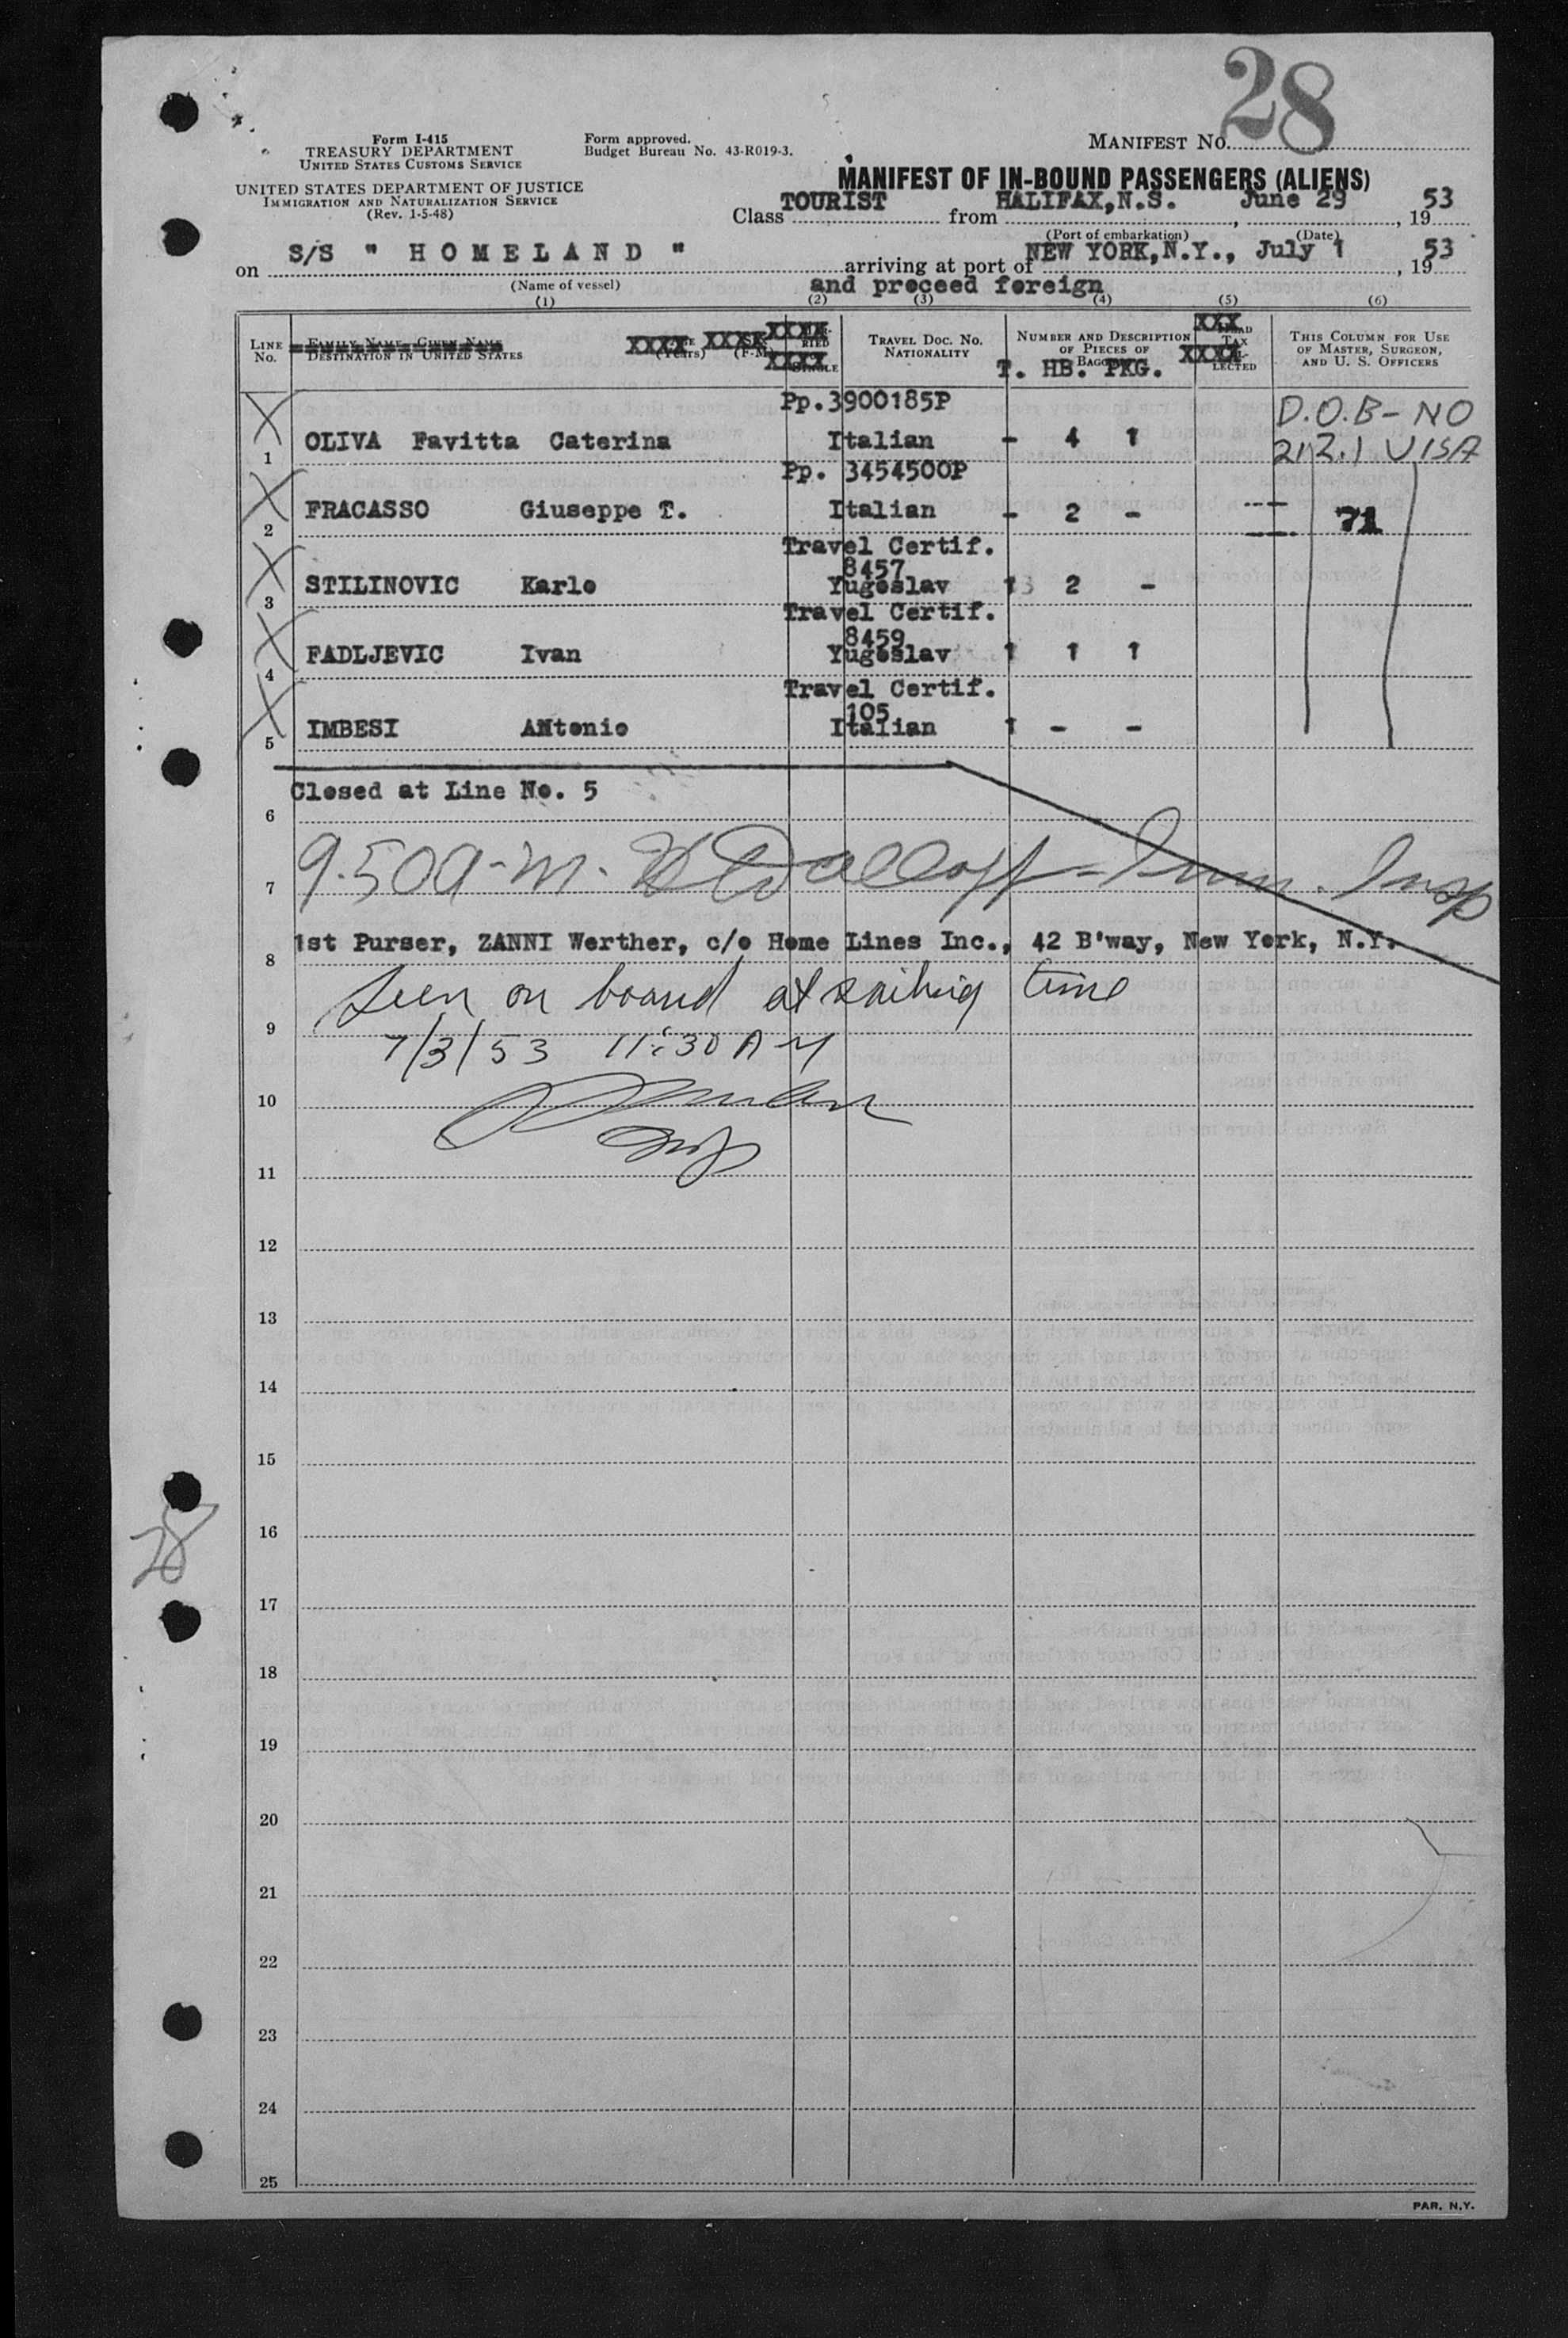 28
Form I-415
TREASURY DEPARTMENT
UNITED STATES CUSTOMS SERVICE
UNITED STATES DEPARTMENT OF JUSTICE
IMMIGRATION AND NATURALIZATION SERVICE
(Rev. 1-5-48)
Form approved.
Budget Bureau No. 43-R019-3.
MANIFEST No.
MANIFEST OF IN-BOUND PASSENGERS (ALIENS)
Class TOURIST from HALIFAX,N.S. , June 29 , 1953
(Port of embarkation) (Date)
on S/S " H O M E L A N D " arriving at port of NEW YORK,N.Y., July 1 , 1953
(Name of vessel) and proceed foreign
(1) (2) (3) (4) (5) (6)
LINE No.
FAMILY NAME—GIVEN NAME
DESTINATION IN UNITED STATES
XXXX XXXX XXXX
(Years) (F-M)
XXXX
TRAVEL DOC. NO.
NATIONALITY
NUMBER AND DESCRIPTION
OF PIECES OF
BAGGAGE
T. HB. PKG.
XXX
TAX
XXXX
LECTED
THIS COLUMN FOR USE
OF MASTER, SURGEON,
AND U. S. OFFICERS
Pp.3900185P D.O.B- NO
1 OLIVA Favitta Caterina Italian - 4 1 212.1 VISA
Pp. 3454500P
2 FRACASSO Giuseppe T. Italian - 2 - --- 71
Travel Certif.
8457
3 STILINOVIC Karlo Yugoslav 1 2 -
Travel Certif.
8459
4 FADLJEVIC Ivan Yugoslav 1 1 1
Travel Certif.
105
5 IMBESI ANtonio Italian 1 - -
Closed at Line No. 5
6
7 9.50 a-m. Imm. Insp
8 1st Purser, ZANNI Werther, c/o Home Lines Inc., 42 B'way, New York, N.Y.
9 Seen on board at sailing time
7/3/53 11:30 AM
10
Insp
11
12
13
14
15
16
28
17
18
19
20
21
22
23
24
25
PAR. N.Y.